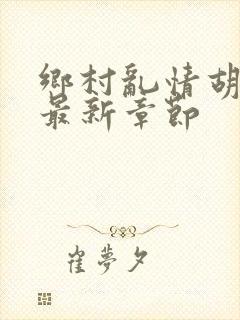 鄉村亂情胡
最新章節
崔夢夕